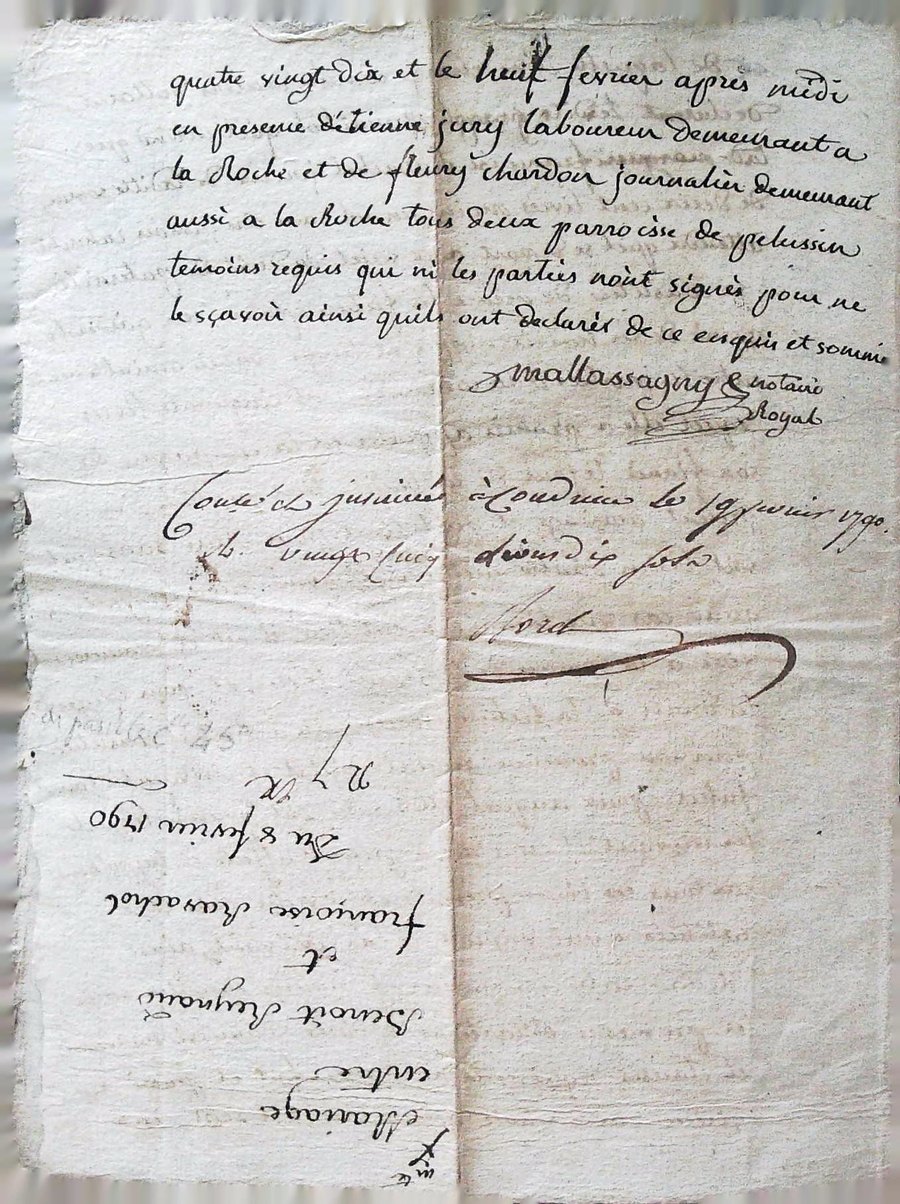 quatre vingt dix et le huit fevrier apres midi
en presence détienne jury laboureur demeurant a
la Roche et de fleury chardon journalier demeurant
aussi a la Roche tous deux parroisse de pelussin
temoins requis qui ni les parties nont signés pour ne
le sçavoir ainsi quils ont declarés de ce enquis et sommé
mallassagny notaire
Royal
Conté et insinué à Condrieu le 19 fevrier 1790.
vingt cinq livres dix sols
45
Mariage
entre
Benoît Reynaud
et
françoise Ravachol
Du 8 fevrier 1790